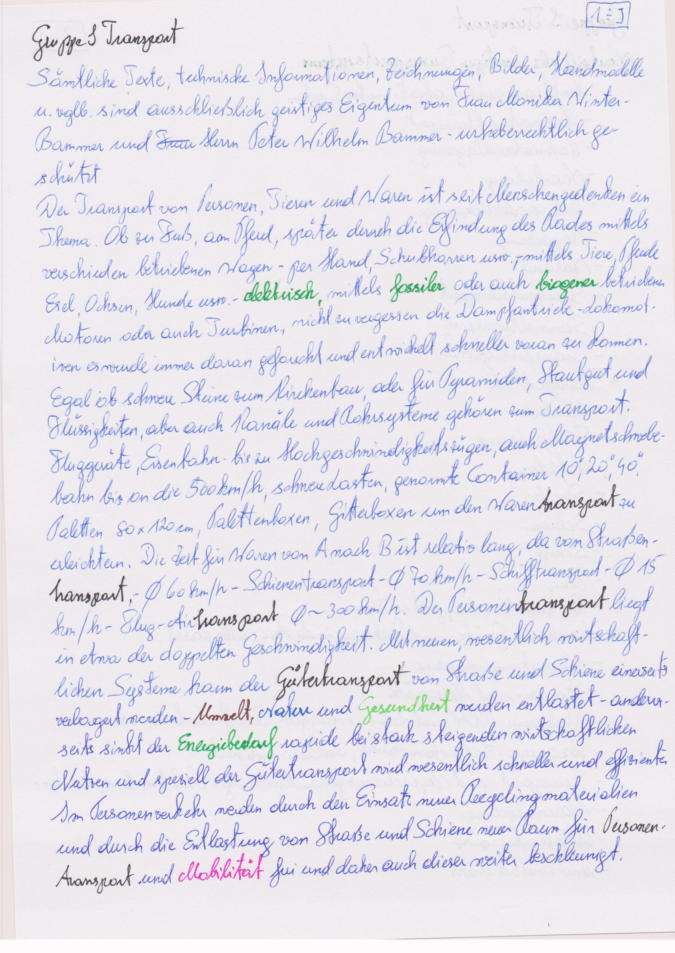 1÷3
Gruppe S Transport
Sämtliche Texte, technische Informationen, Zeichnungen, Bilder, Handmodelle
u. vglb. sind ausschließlich geistiges Eigentum von Frau Monika Winter-
Bammer und Frau Herrn Peter Wilhelm Bammer - urheberrechtlich ge-
schützt
Der Transport von Personen, Tieren und Waren ist seit Menschengedenken ein
Thema. Ob zu Fuß, am Pferd, später durch die Erfindung des Rades mittels
verschieden betriebenen Wagen - per Hand, Schubkarren usw., mittels Tiere, Pferde
Esel, Ochsen, Hunde usw. - elektrisch, mittels fossiler oder auch biogener betriebenen
Motoren oder auch Turbinen, nicht zu vergessen die Dampfantriebe - Lokomot-
iven es wurde immer daran geforscht und entwickelt schneller voran zu kommen.
Egal ob schwere Steine zum Kirchenbau, oder für Pyramiden, Staubgut und
Flüssigkeiten, aber auch Kanäle und Rohrsysteme gehören zum Transport.
Fluggeräte, Eisenbahn - bis zu Hochgeschwindigkeitszügen, auch Magnetschwebe-
bahn bis an die 500 km/h, schwere Lasten, genannte Container 10", 20", 40",
Paletten 80 x 120 cm, Palettenboxen, Gitterboxen um den Warentransport zu
erleichtern. Die Zeit für Waren von A nach B ist relativ lang, da von Straßen-
transport, - Ø 60 km/h - Schienentransport - Ø 70 km/h - Schifftransport - Ø 15
km/h - Flug - Airtransport Ø ~ 300 km/h. Der Personentransport liegt
in etwa der doppelten Geschwindigkeit. Mit neuen, wesentlich wirtschaft-
lichen Systeme kann der Gütertransport von Straße und Schiene einerseits
verlagert werden - Umwelt, Natur und Gesundheit werden entlastet - anderer-
seits sinkt der Energiebedarf rapide bei stark steigenden wirtschaftlichen
Nutzen und speziell der Gütertransport wird wesentlich schneller und effizienter
Im Personenverkehr werden durch den Einsatz neuer Recyclingmaterialien
und durch die Entlastung von Straße und Schiene neuer Raum für Personen-
transport und Mobilität frei und daher auch dieser weiter beschleunigt.